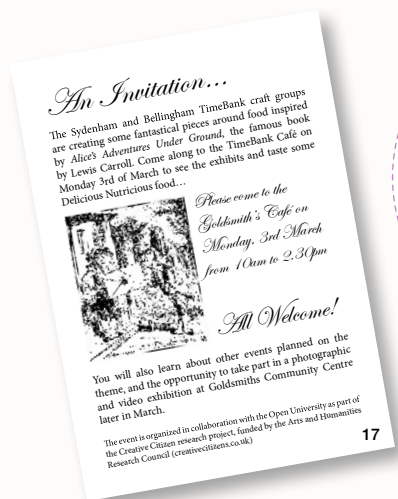 An Invitation...
The Sydenham and Bellingham TimeBank craft groups
are creating some fantastical pieces around food inspired
by Alice's Adventures Under Ground, the famous book
by Lewis Carroll. Come along to the TimeBank Café on
Monday 3rd of March to see the exhibits and taste some
Delicious Nutricious food...
Please come to the
Goldsmith's Café on
Monday, 3rd March
from 10am to 2.30pm
All Welcome!
You will also learn about other events planned on the
theme, and the opportunity to take part in a photographic
and video exhibition at Goldsmiths Community Centre
later in March.
The event is organized in collaboration with the Open University as part of
the Creative Citizen research project, funded by the Arts and Humanities
Research Council (creativecitizens.co.uk)
17